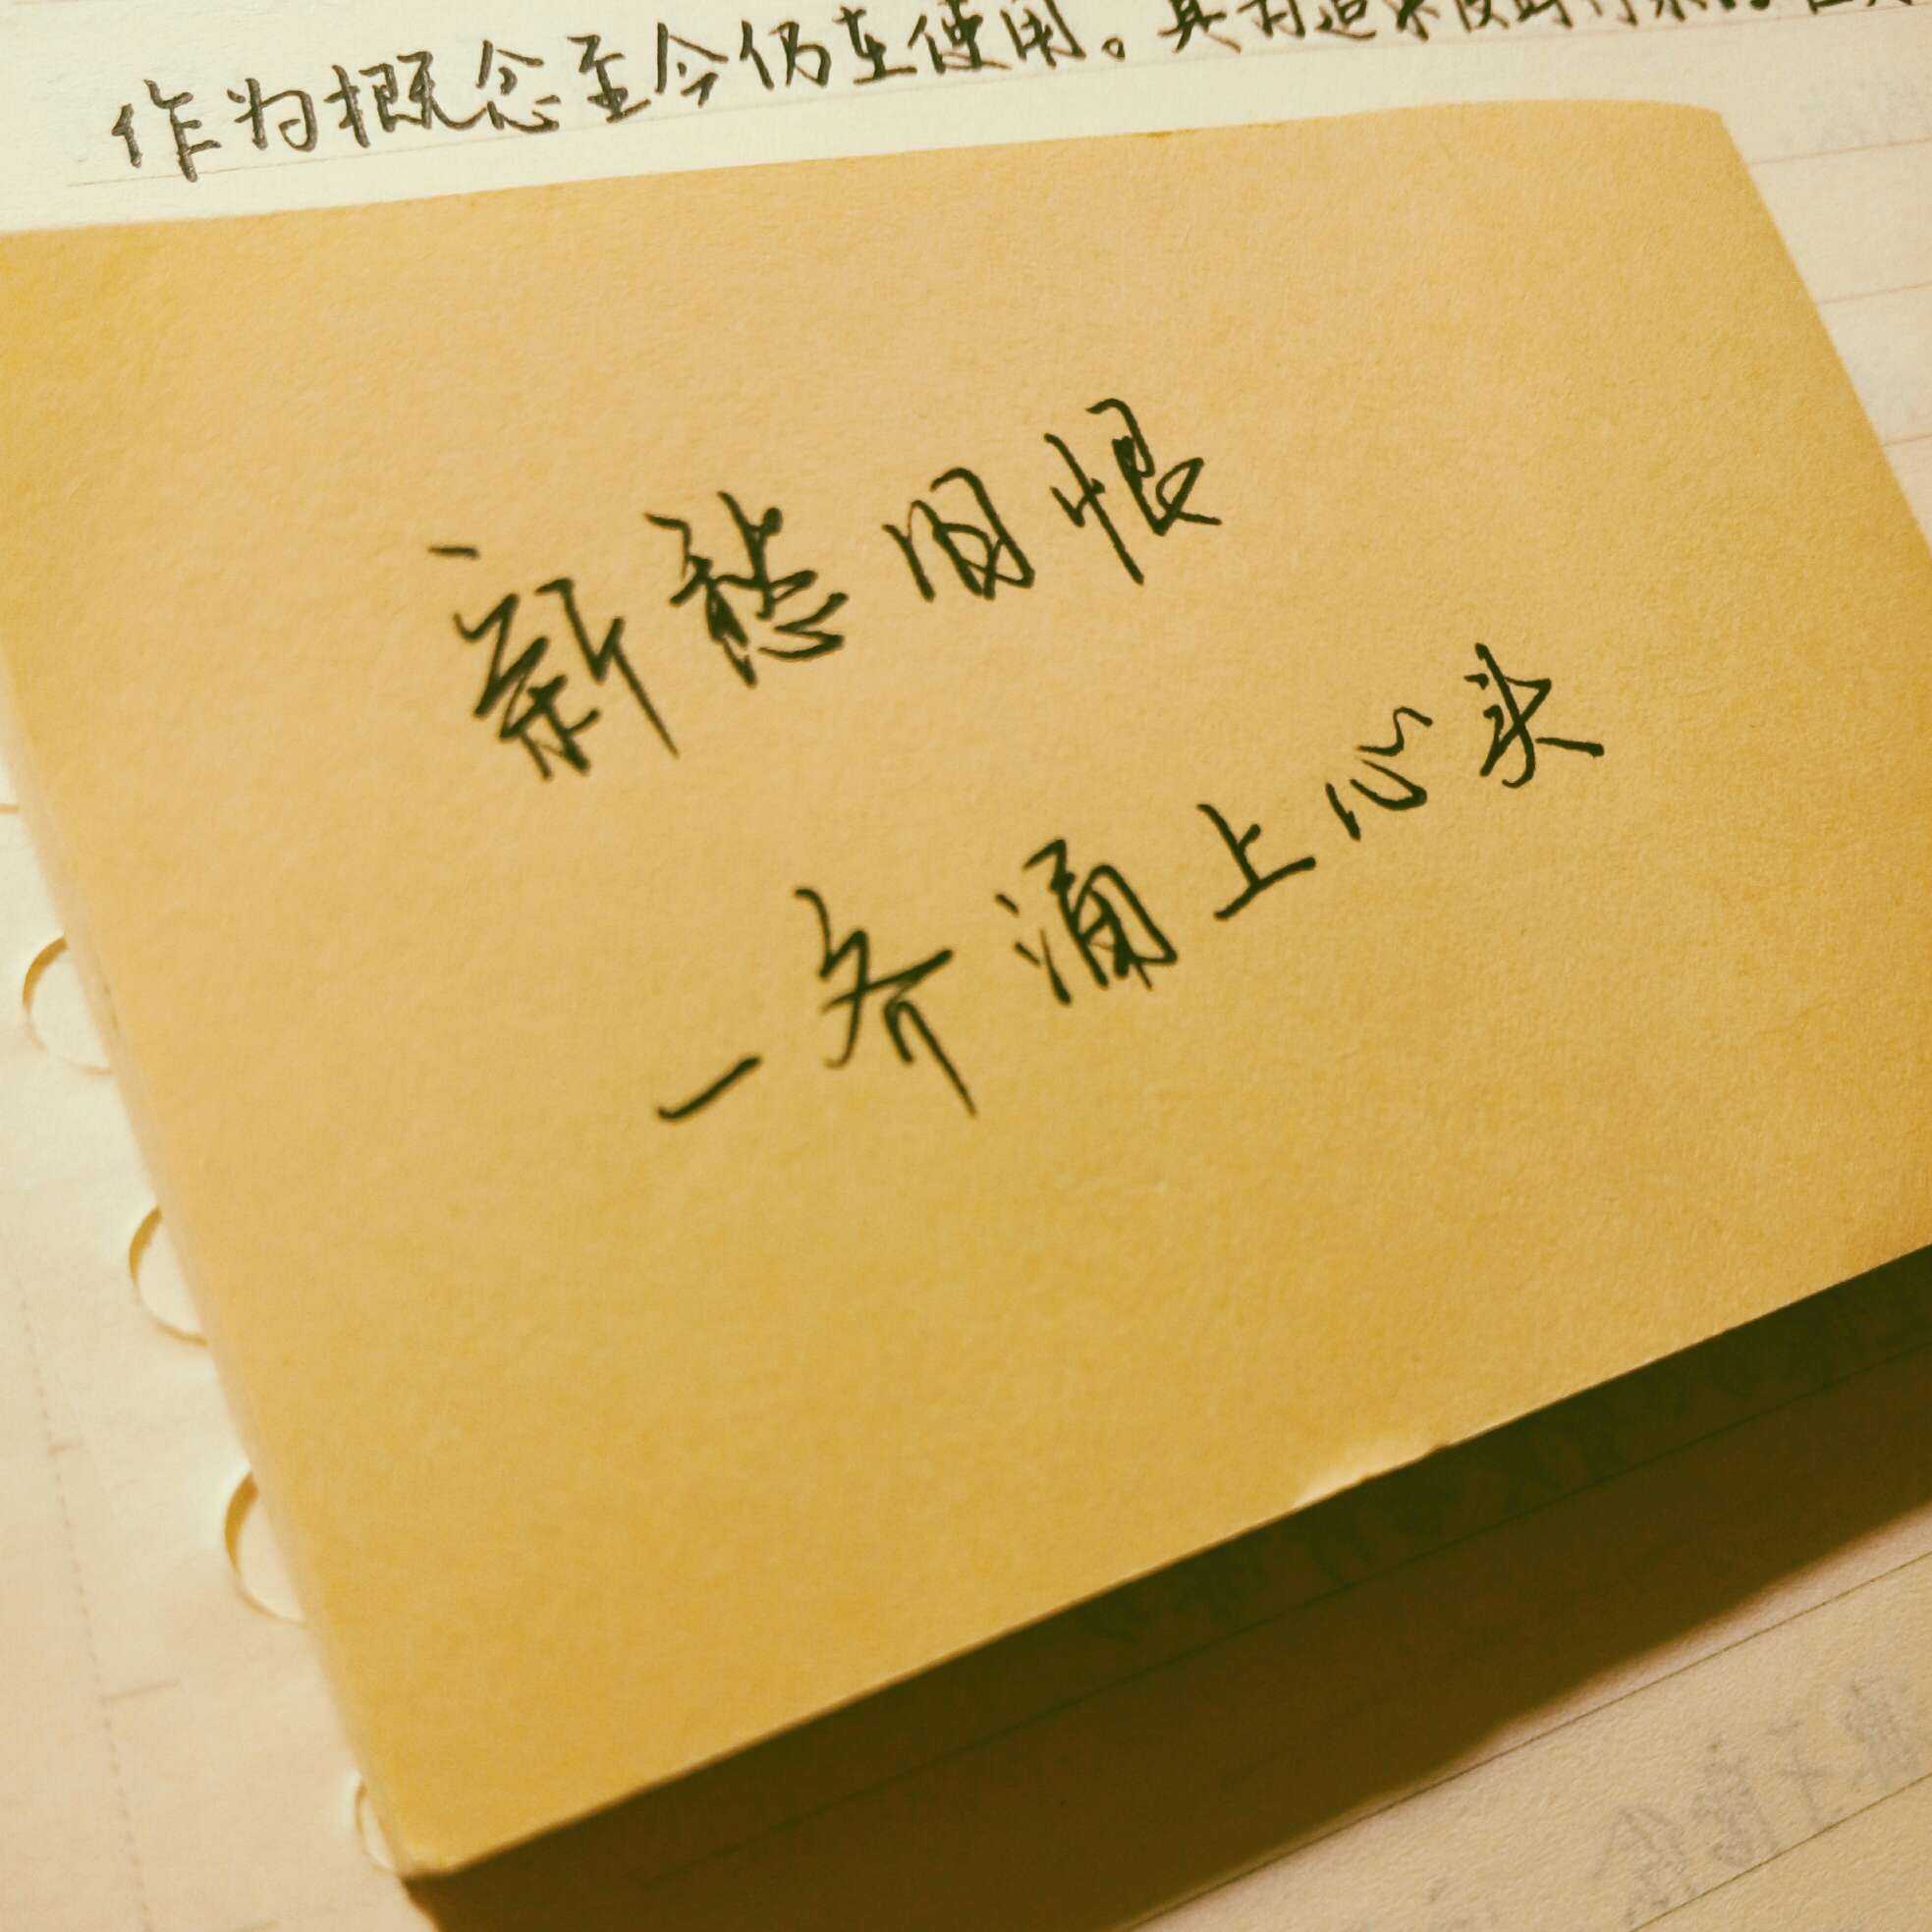 作为概念至今仍在使用。具
新愁旧恨
一齐涌上心头